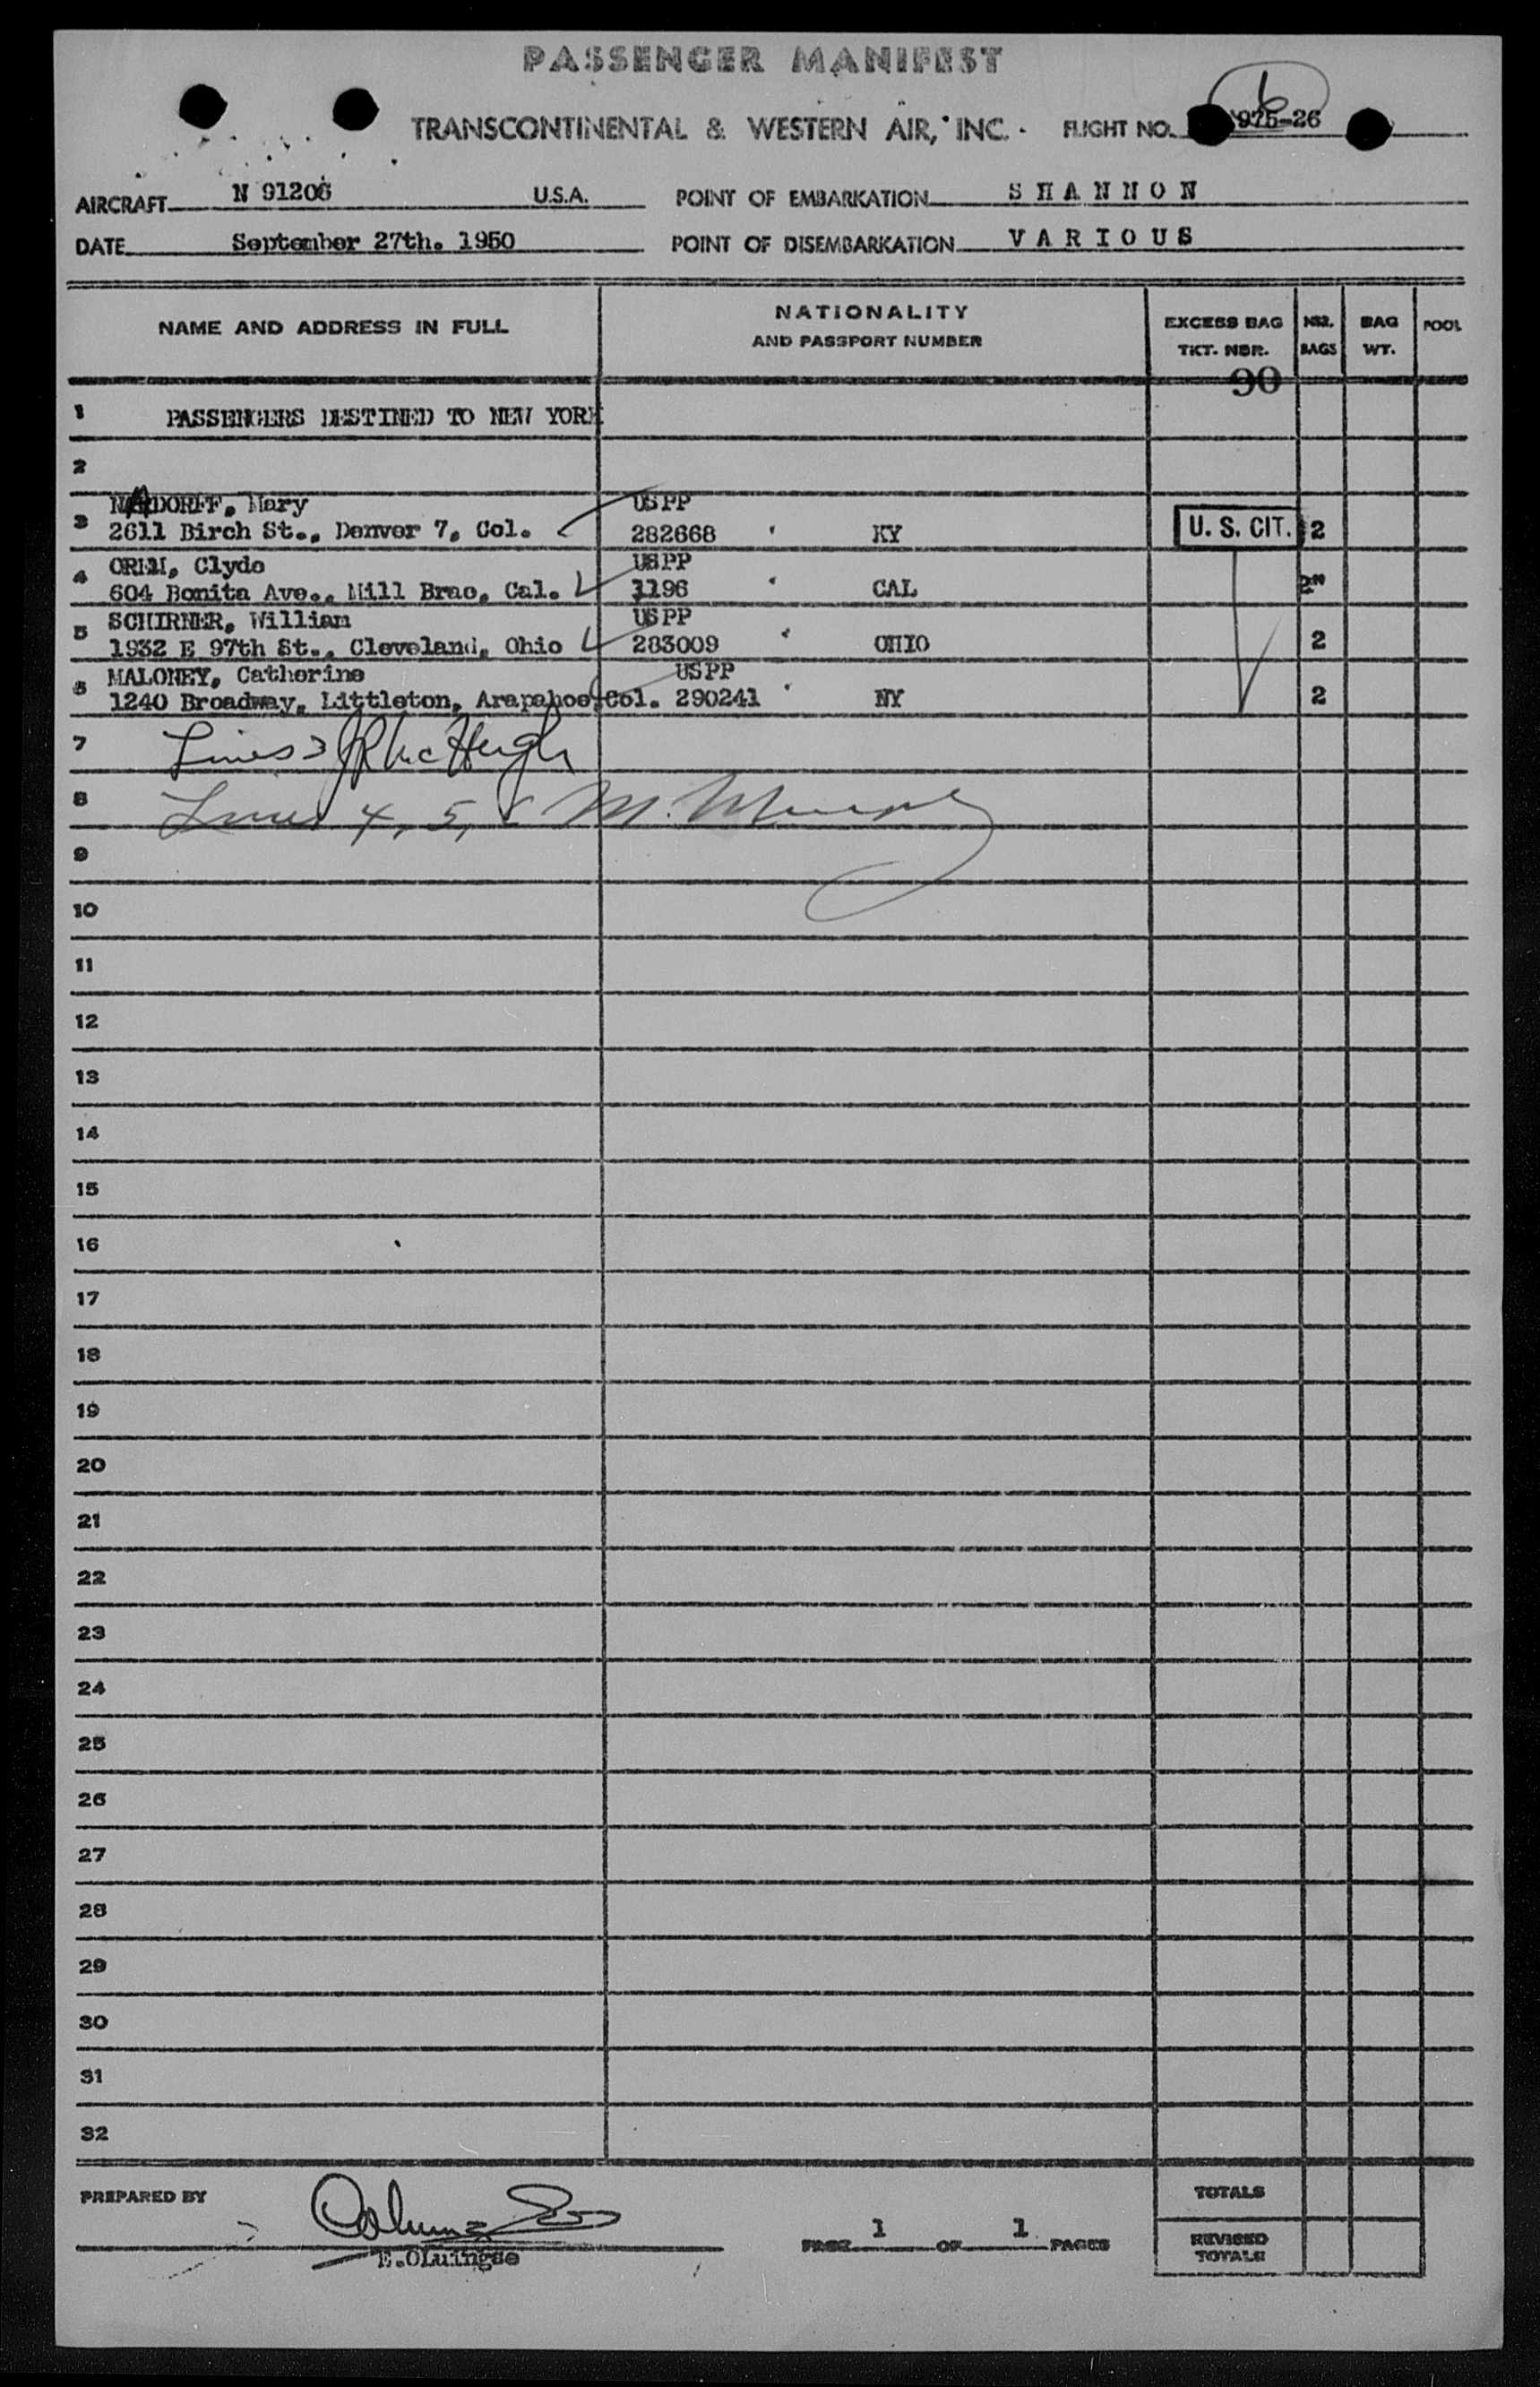 PASSENGER MANIFEST
TRANSCONTINENTAL & WESTERN AIR, INC. FLIGHT NO. 975-26
6
AIRCRAFT N 91206 U.S.A. POINT OF EMBARKATION S H A N N O N
DATE September 27th. 1950 POINT OF DISEMBARKATION V A R I O U S
NAME AND ADDRESS IN FULL NATIONALITY AND PASSPORT NUMBER EXCESS BAG TKT. NBR. NBR. BAGS BAG WT. POOL
90
1 PASSENGERS DESTINED TO NEW YORK
2
Mary USPP
3 2611 Birch St., Denver 7, Col. 282668 KY U. S. CIT. 2
Clyde USPP
4 604 Bonita Ave., Mill Brae, Cal. 1196 CAL 2"
SCHIRNER, William USPP
5 1932 E 97th St., Cleveland, Ohio 283009 OHIO 2
MALONEY, Catherine USPP
6 1240 Broadway, Littleton, Arapahoe, Col. 290241 NY 2
7 Lines 3 McHugh
8 Lines 4, 5, 6 M.
9
10
11
12
13
14
15
16
17
18
19
20
21
22
23
24
25
26
27
28
29
30
31
32
PREPARED BY TOTALS
PAGE 1 OF 1 PAGES REVISED TOTALS